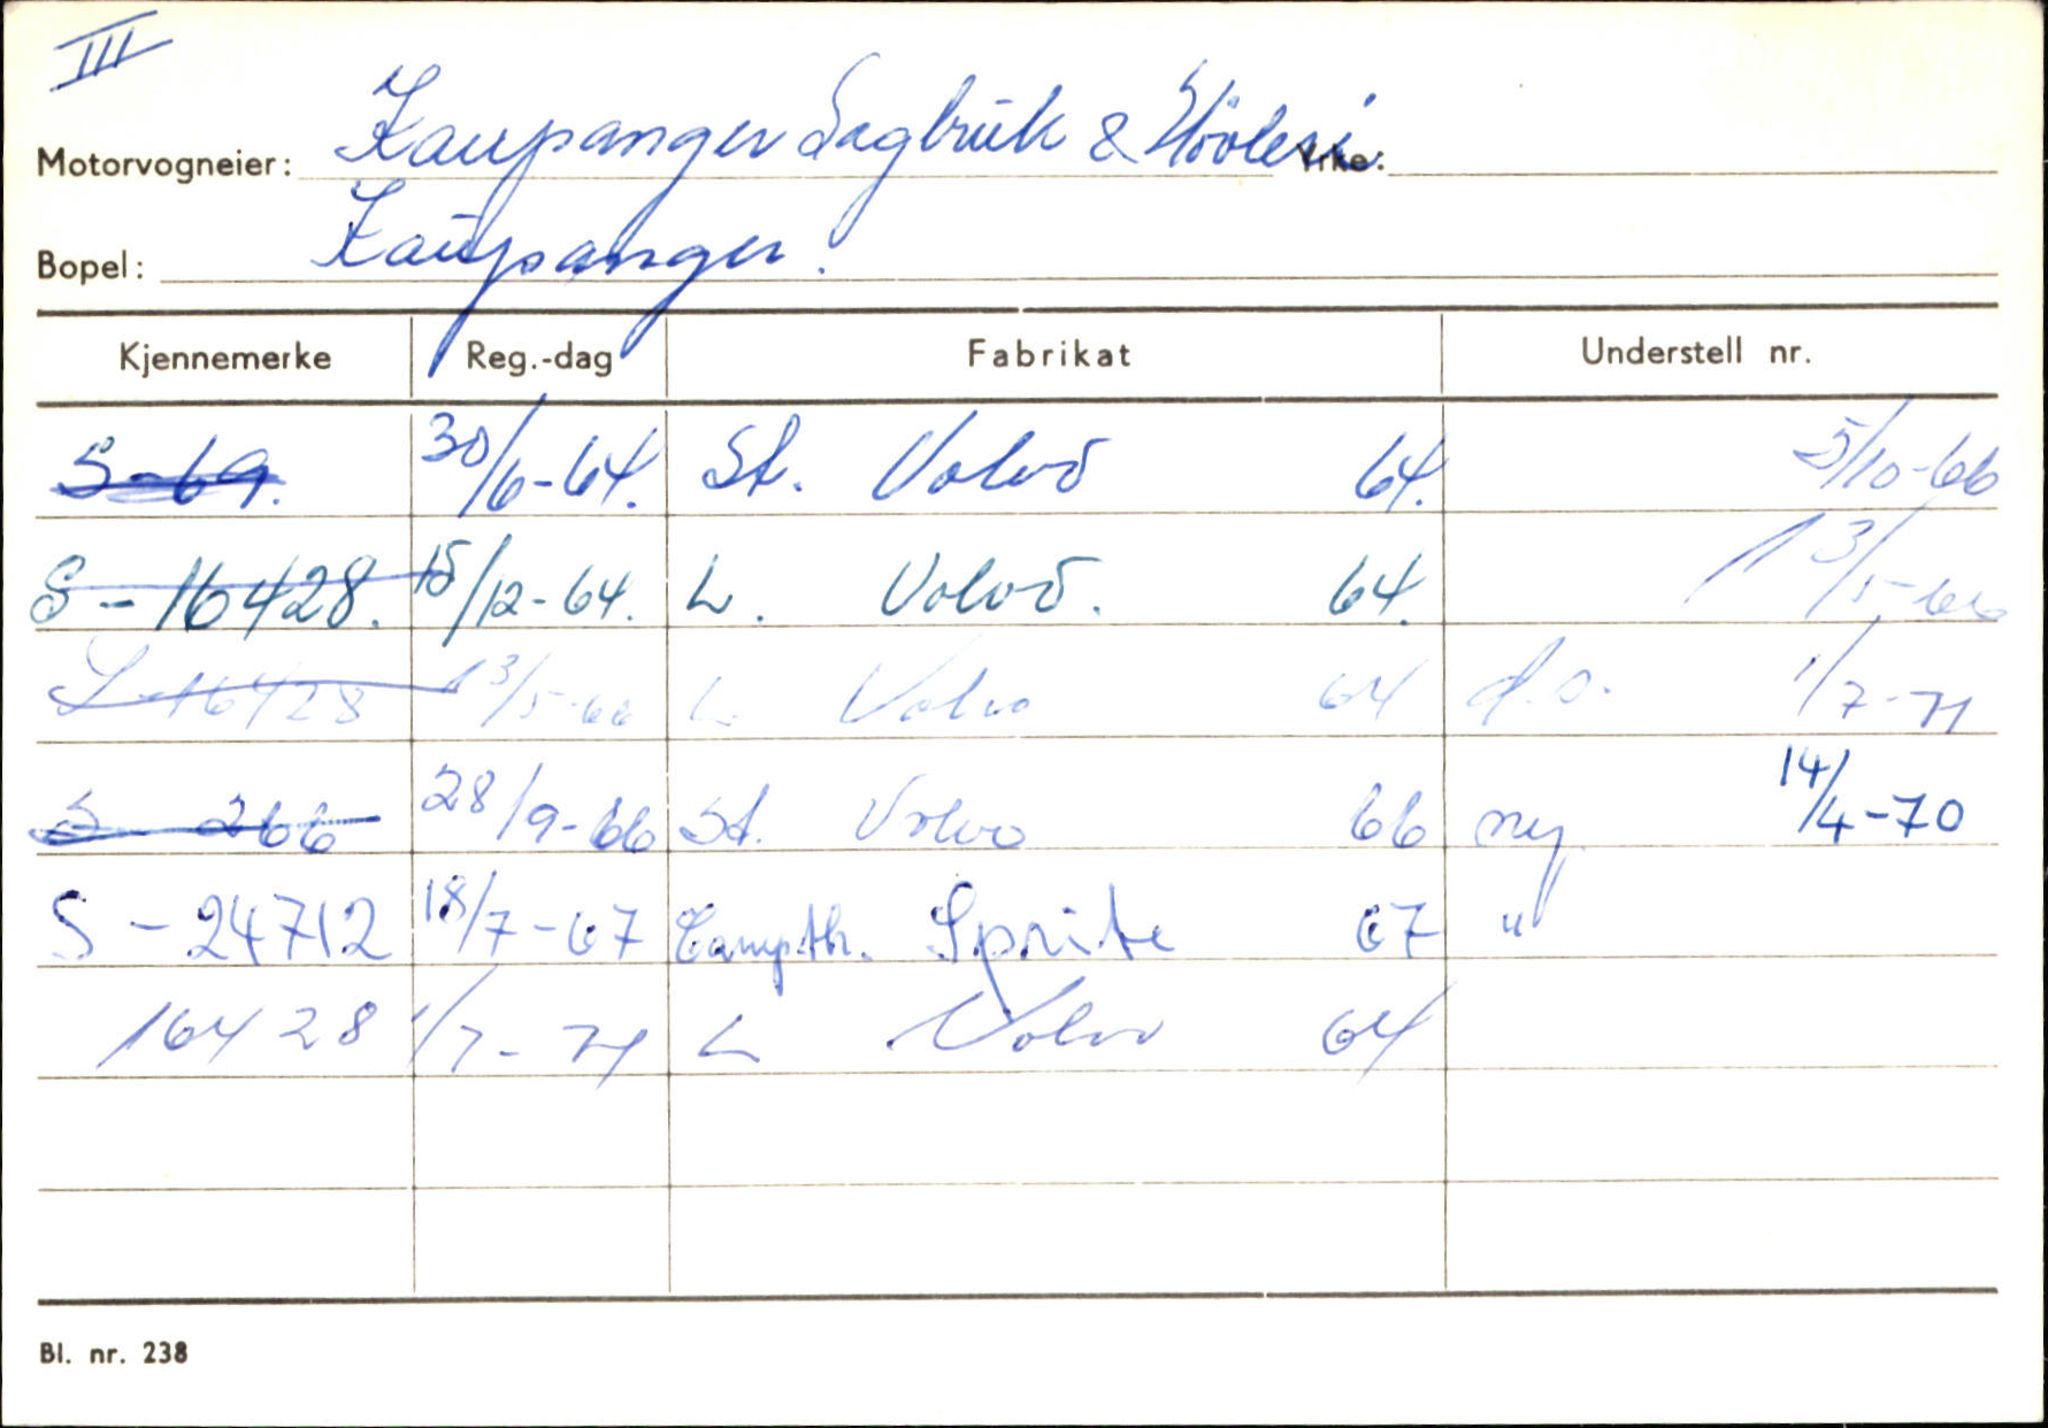 III
Motorvogneier: Kaupanger Sagbruk & Høvleri Yrke:
Bopel: Kaupanger.
Kjennemerke Reg.-dag Fabrikat Understell nr.
S-69. 30/6-64. St. Volvo 64. 5/10-66
S-16428. 15/12-64. L. Volvo. 64. 13/5-66
S-16428 13/5-66 L. Volvo 64 d.o. 1/7-71
S-266 28/9-66 St. Volvo 66 ny 14/4-70
S-24712 18/7-67 Camp.th. Sprite 67 "
16428 1/7-71 L Volvo 64
Bl. nr. 238